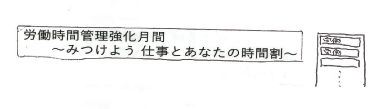 労働時間管理強化月間
～みつけよう 仕事とあなたの時間割～